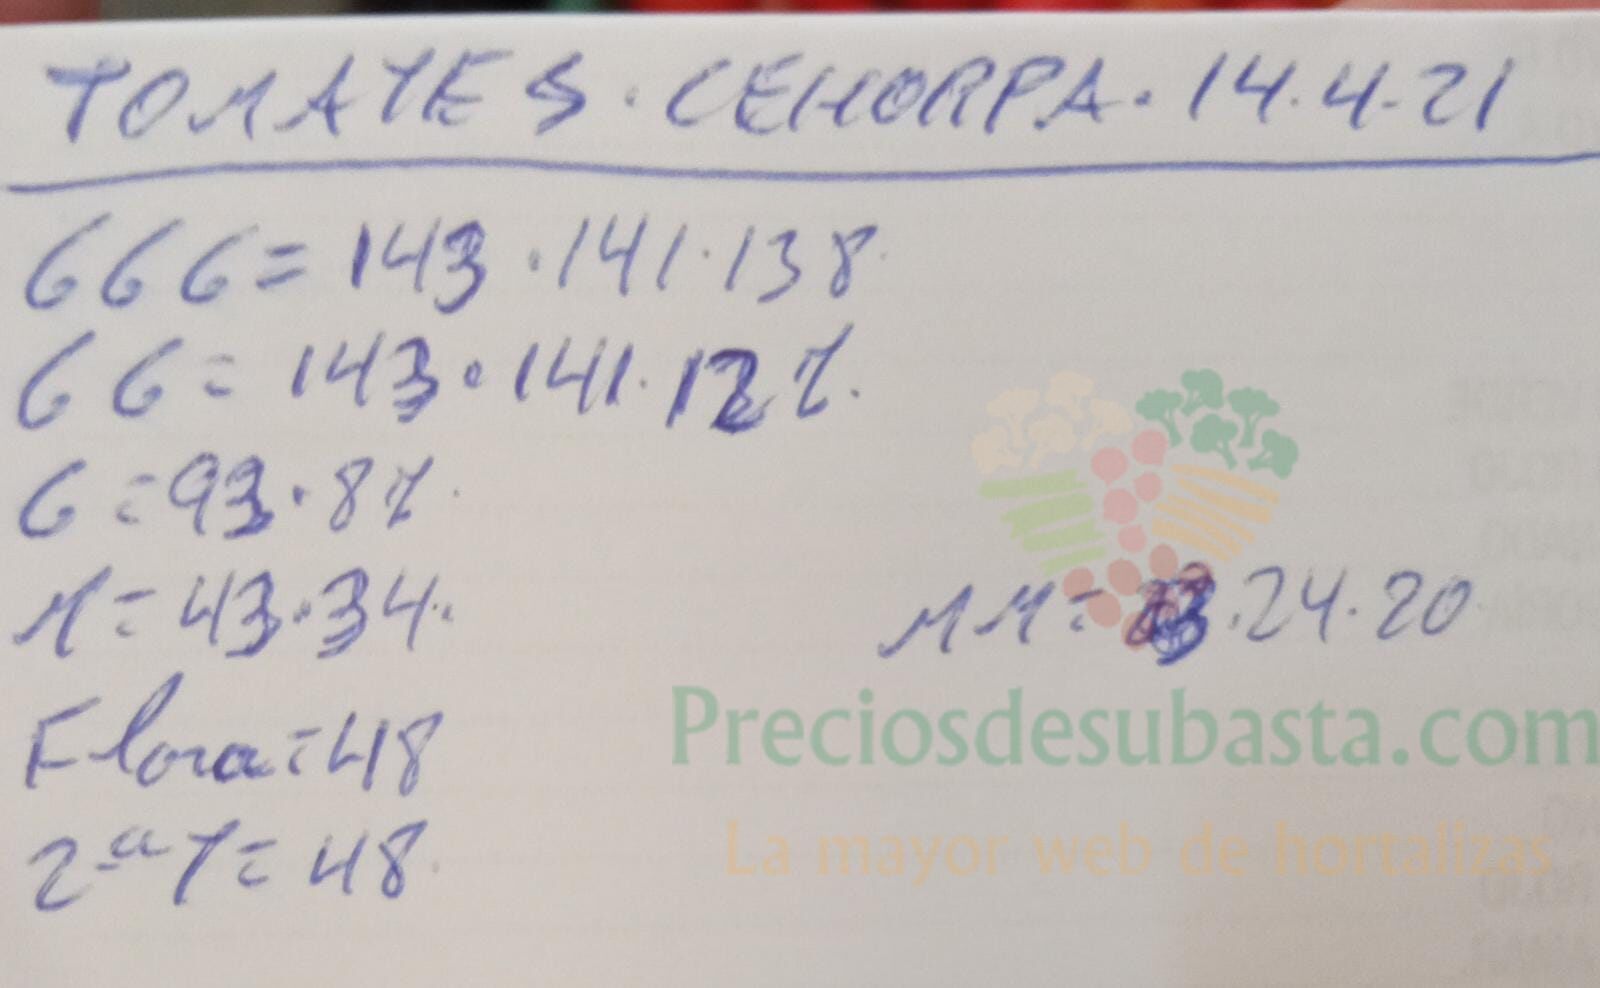 TOMATES · CEHORPA · 14·4·21
GGG = 143 · 141 · 138
GG = 143 · 141 ·
G = 93 ·
M = 43 · 34 ·
MM = · 24 · 20
Flora = 48
2ª T = 48
Preciosdesubasta.com
La mayor web de hortalizas